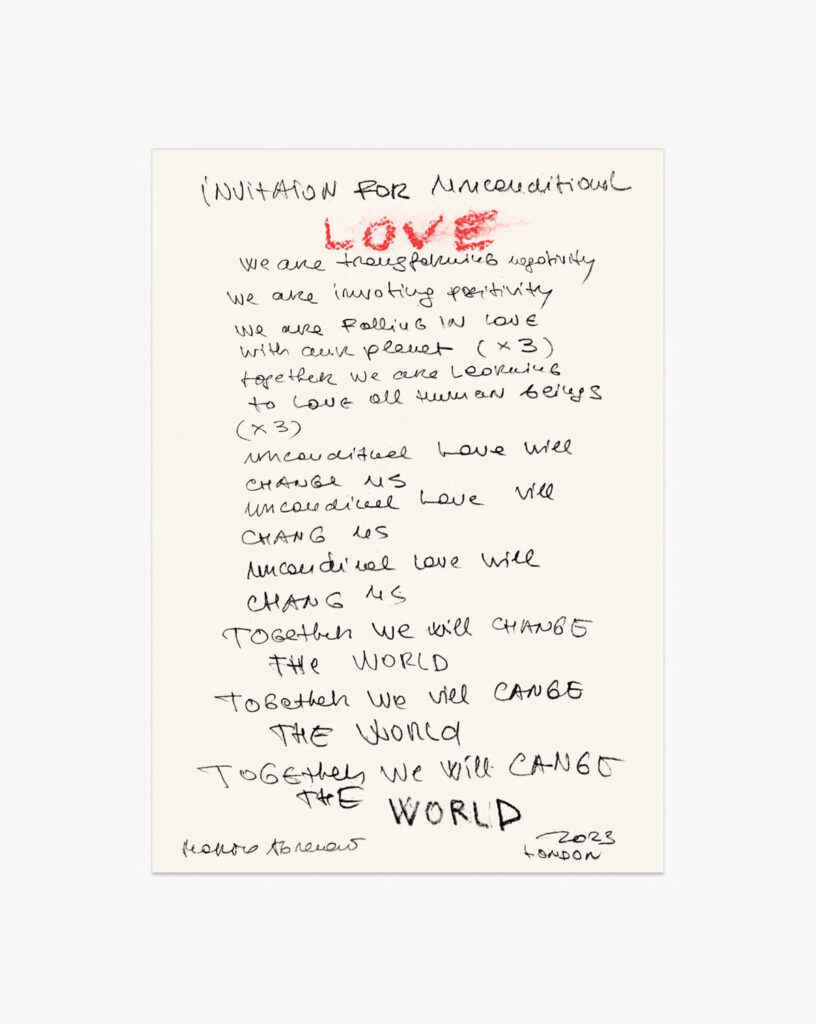 INVITAION FOR Unconditional
LOVE
We are transforming negativity
We are invoting positivity
We are Falling IN LOVE
With our planet (x3)
together we are Learning
to LOVE all Human beings
(x3)
uncondituel Love will
CHANGE US
uncondinel Love vill
CHANG US
uncondinal Love will
CHANG US
TOGether We will CHANGE
THE WORLD
TOGether We vill CANGE
THE WORLd
TOGEther We will CANGE
THE WORLD
2023
LONDON